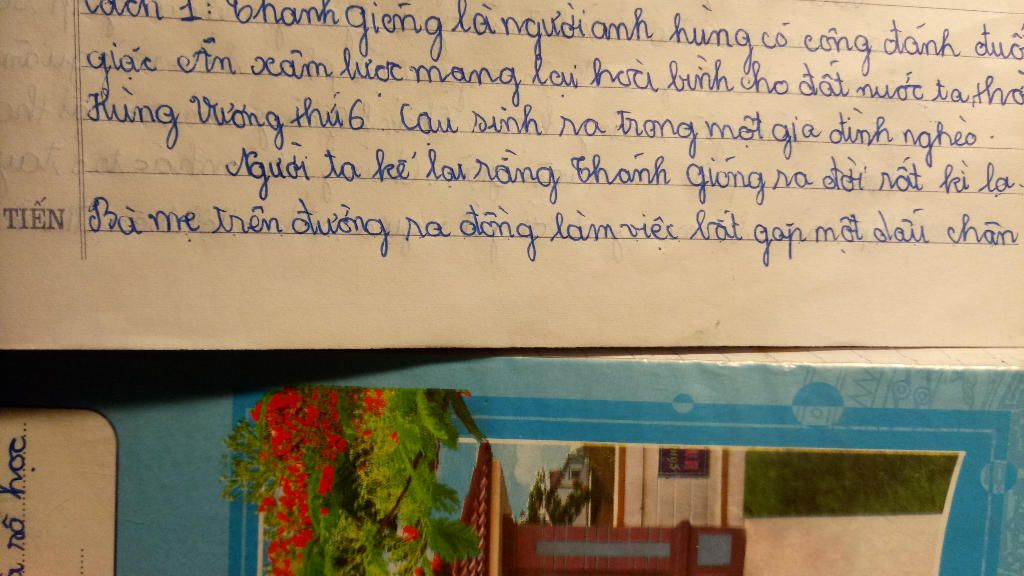 Cách 1: Thánh gióng là người anh hùng có công đánh đuổi
giặc Ân xâm lược mang lại hoà bình cho đất nước ta, thời
Hùng Vương thứ 6. Cậu sinh ra trong một gia đình nghèo.
Người ta kể lại rằng Thánh gióng ra đời rất kì lạ.
TIẾN Bà mẹ trên đường ra đồng làm việc bắt gặp một dấu chân
số học